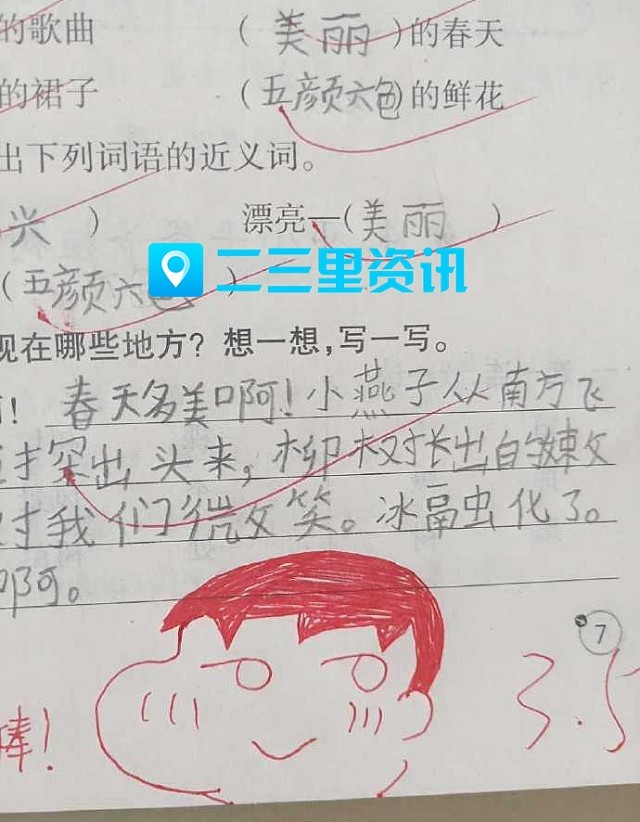 的歌曲 (美丽)的春天
的裙子 (五颜六色)的鲜花
出下列词语的近义词。
兴 ) 漂亮—(美丽 )
二三里资讯
(五颜六色 )
现在哪些地方?想一想,写一写。
! 春天多美啊!小燕子从南方飞
才突出头来,柳树长出自嫩
对我们微笑。冰融化了。
啊。
7
棒! 3.5